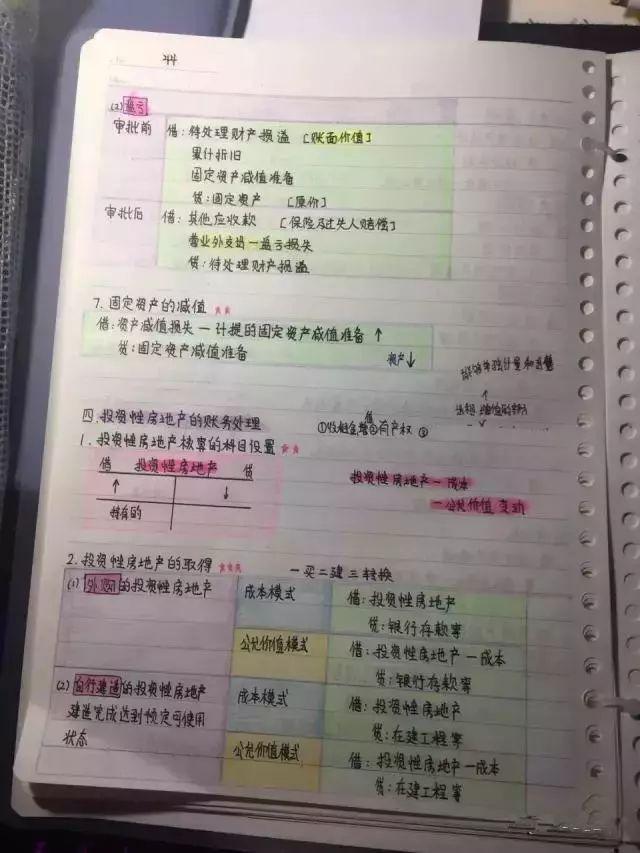 (2) 盘亏
审批前 借:待处理财产损溢 [账面价值]
累计折旧
固定资产减值准备
贷:固定资产 [原价]
审批后 借:其他应收款 [保险及过失人赔偿]
营业外支出一盘亏损失
贷:待处理财产损溢
7. 固定资产的减值 ★★
借:资产减值损失一计提的固定资产减值准备 ↑
贷:固定资产减值准备 资产↓
能够单独计量和出售
↑
四.投资性房地产的账务处理
②有产权 ③
1. 投资性房地产核算的科目设置 ★★
借 投资性房地产 贷
↑ ↓
持有的
投资性房地产一成本
一公允价值变动
2. 投资性房地产的取得 ★★★ 一买二建三转换
(1) 外购的投资性房地产 成本模式 借:投资性房地产
贷:银行存款等
公允价值模式 借:投资性房地产一成本
贷:银行存款等
(2) 自行建造的投资性房地产 成本模式 借:投资性房地产
建造完成达到预定可使用 贷:在建工程等
状态 公允价值模式 借:投资性房地产一成本
贷:在建工程等